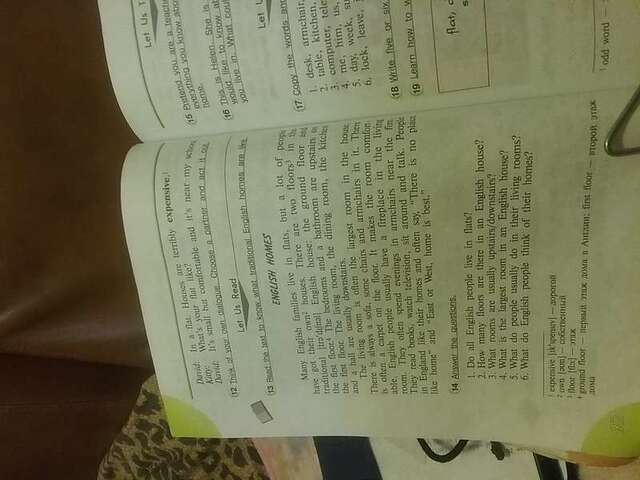 David: In a flat. Houses are terribly expensive.¹
Kitty: What's your flat like?
Kitty: It's small but comfortable and it's near my school.
David:
12 Think of your own dialogue. Choose a partner and act it out.
Let Us Read
13 Read the text to know what traditional English homes are like.
ENGLISH HOMES
Many English families live in flats, but a lot of people
have got their own² houses. There are two floors³ in the
traditional English house: the ground floor and
the first floor.⁴ The bedrooms and a bathroom are upstairs on
the first floor. The living room, the dining room, the kitchen
and a hall are usually downstairs.
The living room is often the largest room in the house.
There is always a sofa, some chairs and armchairs in it. There
is often a carpet on the floor. It makes the room comfort-
able. English people usually have a fireplace in the living
room. They often spend evenings in armchairs near the fire.
They read books, watch television, sit around and talk. People
in England like their homes and often say, "There is no place
like home" and "East or West, home is best."
14 Answer the questions.
1. Do all English people live in flats?
2. How many floors are there in an English house?
3. What rooms are usually upstairs/downstairs?
4. What is the largest room in an English house?
5. What do people usually do in their living rooms?
6. What do English people think of their homes?
¹ expensive — дорогой
² own — собственный
³ floor — этаж
⁴ ground floor — первый этаж дома в Англии; first floor — второй этаж
дома
Let Us T
15 Pretend you are a teache
everything you know abou
home.
16 This is Helen. She is
would like to know ab
you live in. What coul
Let U
17 Copy the words and
1. desk, armchair,
2. table, kitchen,
3. computer, tele
4. me, him, us,
5. day, week, su
6. lock, leave,
18 Write five or six
19 Learn how to w
flat,
¹ odd word —